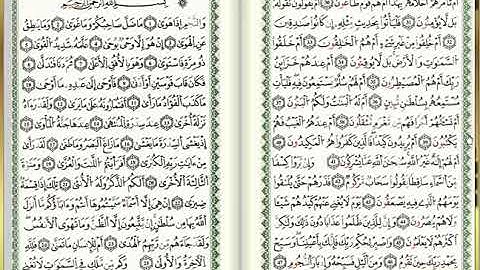 أَمْ تَأْمُرُهُمْ أَحْلَامُهُم بِهَٰذَا أَمْ هُمْ قَوْمٌ طَاغُونَ ٣٢ أَمْ يَقُولُونَ
تَقَوَّلَهُ بَل لَّا يُؤْمِنُونَ ٣٣ فَلْيَأْتُوا بِحَدِيثٍ مِّثْلِهِ إِن كَانُوا صَٰدِقِينَ
٣٤ أَمْ خُلِقُوا مِنْ غَيْرِ شَيْءٍ أَمْ هُمُ الْخَٰلِقُونَ ٣٥ أَمْ خَلَقُوا
السَّمَٰوَٰتِ وَالْأَرْضَ بَل لَّا يُوقِنُونَ ٣٦ أَمْ عِندَهُمْ خَزَائِنُ
رَبِّكَ أَمْ هُمُ الْمُصَيْطِرُونَ ٣٧ أَمْ لَهُمْ سُلَّمٌ يَسْتَمِعُونَ فِيهِ فَلْيَأْتِ
مُسْتَمِعُهُم بِسُلْطَٰنٍ مُّبِينٍ ٣٨ أَمْ لَهُ الْبَنَٰتُ وَلَكُمُ الْبَنُونَ ٣٩
أَمْ تَسْـَٔلُهُمْ أَجْرًا فَهُم مِّن مَّغْرَمٍ مُّثْقَلُونَ ٤٠ أَمْ عِندَهُمُ الْغَيْبُ فَهُمْ
يَكْتُبُونَ ٤١ أَمْ يُرِيدُونَ كَيْدًا فَالَّذِينَ كَفَرُوا هُمُ الْمَكِيدُونَ ٤٢
أَمْ لَهُمْ إِلَٰهٌ غَيْرُ اللَّهِ سُبْحَٰنَ اللَّهِ عَمَّا يُشْرِكُونَ ٤٣ وَإِن يَرَوْا كِسْفًا
مِّنَ السَّمَاءِ سَاقِطًا يَقُولُوا سَحَابٌ مَّرْكُومٌ ٤٤ فَذَرْهُمْ حَتَّىٰ يُلَٰقُوا
يَوْمَهُمُ الَّذِي فِيهِ يُصْعَقُونَ ٤٥ يَوْمَ لَا يُغْنِي عَنْهُمْ كَيْدُهُمْ شَيْـًٔا
وَلَا هُمْ يُنصَرُونَ ٤٦ وَإِنَّ لِلَّذِينَ ظَلَمُوا عَذَابًا دُونَ ذَٰلِكَ وَلَٰكِنَّ
أَكْثَرَهُمْ لَا يَعْلَمُونَ ٤٧ وَاصْبِرْ لِحُكْمِ رَبِّكَ فَإِنَّكَ بِأَعْيُنِنَا وَسَبِّحْ
بِحَمْدِ رَبِّكَ حِينَ تَقُومُ ٤٨ وَمِنَ اللَّيْلِ فَسَبِّحْهُ وَإِدْبَٰرَ النُّجُومِ ٤٩
بِسْمِ اللَّهِ الرَّحْمَٰنِ الرَّحِيمِ
وَالنَّجْمِ إِذَا هَوَىٰ ١ مَا ضَلَّ صَاحِبُكُمْ وَمَا غَوَىٰ ٢ وَمَا يَنطِقُ
عَنِ الْهَوَىٰ ٣ إِنْ هُوَ إِلَّا وَحْيٌ يُوحَىٰ ٤ عَلَّمَهُ شَدِيدُ الْقُوَىٰ ٥
ذُو مِرَّةٍ فَاسْتَوَىٰ ٦ وَهُوَ بِالْأُفُقِ الْأَعْلَىٰ ٧ ثُمَّ دَنَا فَتَدَلَّىٰ ٨
فَكَانَ قَابَ قَوْسَيْنِ أَوْ أَدْنَىٰ ٩ فَأَوْحَىٰ إِلَىٰ عَبْدِهِ مَا أَوْحَىٰ ١٠
مَا كَذَبَ الْفُؤَادُ مَا رَأَىٰ ١١ أَفَتُمَٰرُونَهُ عَلَىٰ مَا يَرَىٰ ١٢ وَلَقَدْ رَءَاهُ
نَزْلَةً أُخْرَىٰ ١٣ عِندَ سِدْرَةِ الْمُنتَهَىٰ ١٤ عِندَهَا جَنَّةُ الْمَأْوَىٰ ١٥
إِذْ يَغْشَى السِّدْرَةَ مَا يَغْشَىٰ ١٦ مَا زَاغَ الْبَصَرُ وَمَا طَغَىٰ ١٧ لَقَدْ رَأَىٰ
مِنْ ءَايَٰتِ رَبِّهِ الْكُبْرَىٰ ١٨ أَفَرَءَيْتُمُ اللَّٰتَ وَالْعُزَّىٰ ١٩ وَمَنَوٰةَ
الثَّالِثَةَ الْأُخْرَىٰ ٢٠ أَلَكُمُ الذَّكَرُ وَلَهُ الْأُنثَىٰ ٢١ تِلْكَ إِذًا قِسْمَةٌ
ضِيزَىٰ ٢٢ إِنْ هِيَ إِلَّا أَسْمَاءٌ سَمَّيْتُمُوهَا أَنتُمْ وَءَابَاؤُكُم مَّا أَنزَلَ
اللَّهُ بِهَا مِن سُلْطَٰنٍ إِن يَتَّبِعُونَ إِلَّا الظَّنَّ وَمَا تَهْوَى الْأَنفُسُ
وَلَقَدْ جَاءَهُم مِّن رَّبِّهِمُ الْهُدَىٰ ٢٣ أَمْ لِلْإِنسَٰنِ مَا تَمَنَّىٰ ٢٤ فَلِلَّهِ
الْأَخِرَةُ وَالْأُولَىٰ ٢٥ وَكَم مِّن مَّلَكٍ فِي السَّمَٰوَٰتِ لَا تُغْنِي